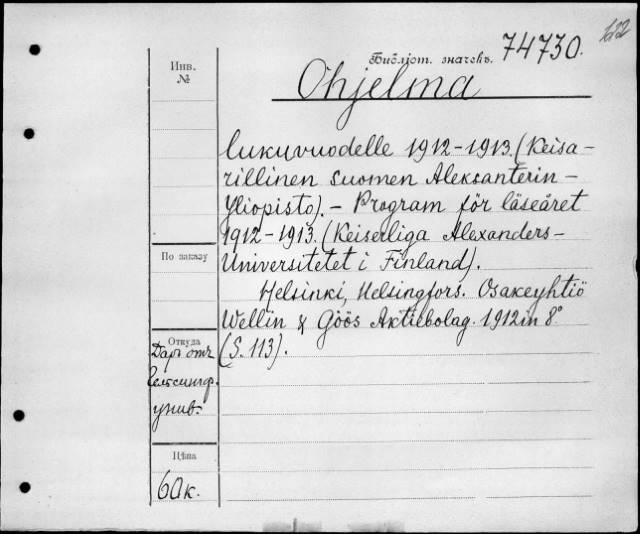 122
Библіот. значекъ. 74730.
Инв.
№
Ohjelma
lukuvuodelle 1912-1913. (Keisa-
rillinen Suomen Aleksanterin-
Yliopisto). - Program för läseåret
1912-1913. (Keiserliga Alexanders-
Universitetet i Finland).
По заказу
Helsinki, Helsingfors. Osakeyhtiö
Wellin & Göös Aktiebolag. 1912 in 8°
(S. 113).
Откуда
Даръ отъ
Гельсингф.
унив.
Цѣна
60 к.